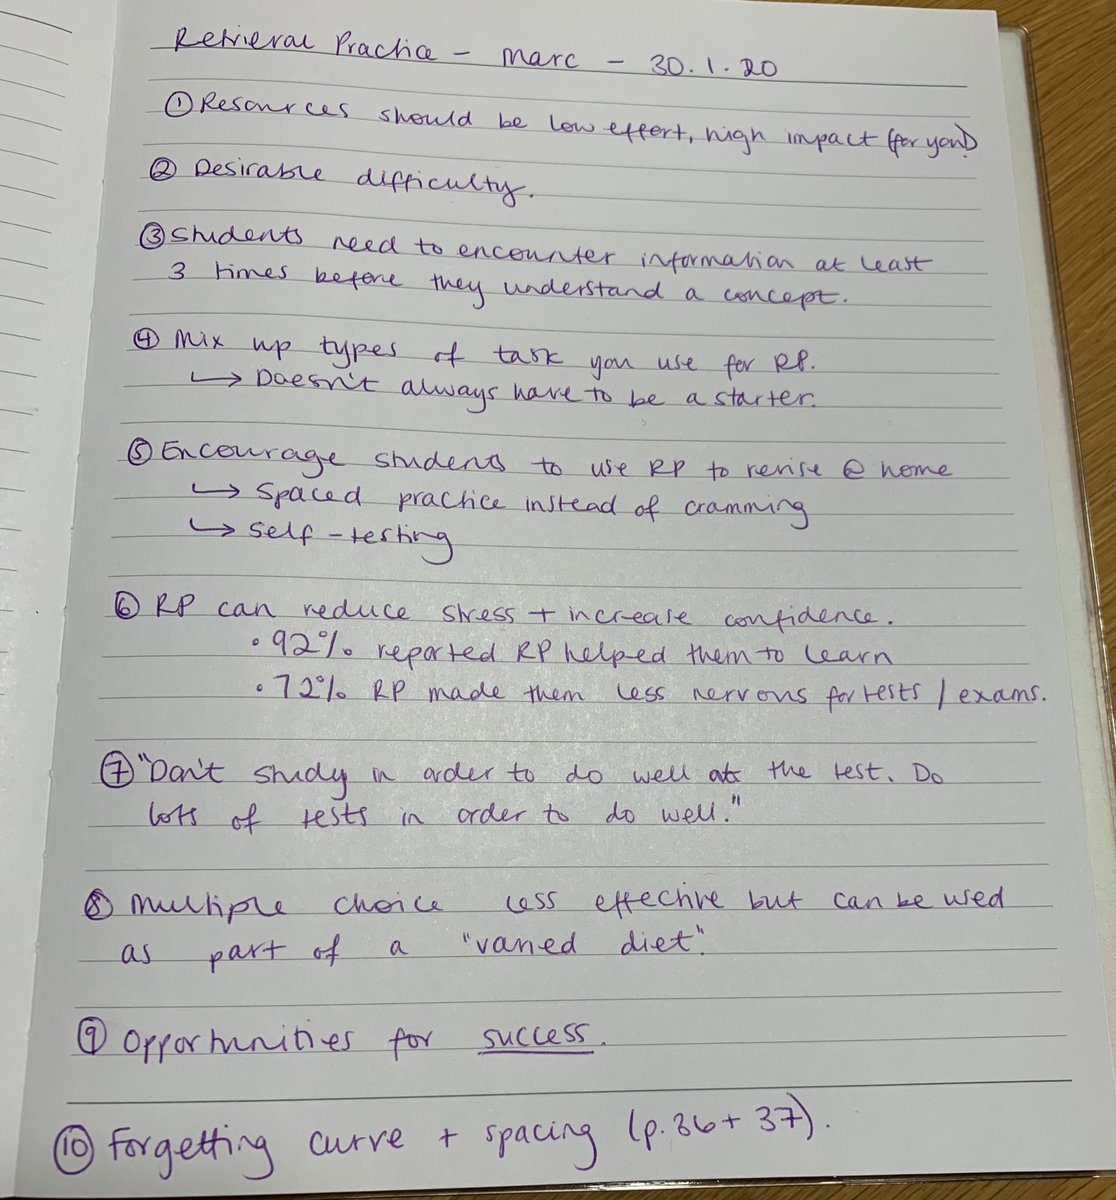 Retrieval Practice - Marc - 30.1.20
① Resources should be low effort, high impact (for you!)
② Desirable difficulty.
③ Students need to encounter information at least
3 times before they understand a concept.
④ Mix up types of task you use for RP.
↳ Doesn't always have to be a starter.
⑤ Encourage students to use RP to revise @ home
↳ Spaced practice instead of cramming
↳ Self-testing
⑥ RP can reduce stress + increase confidence.
• 92% reported RP helped them to learn
• 72% RP made them less nervous for tests / exams.
⑦ "Don't study in order to do well at the test. Do
lots of tests in order to do well."
⑧ Multiple choice less effective but can be used
as part of a "varied diet".
⑨ Opportunities for success.
⑩ Forgetting curve + spacing (p.36 + 37).